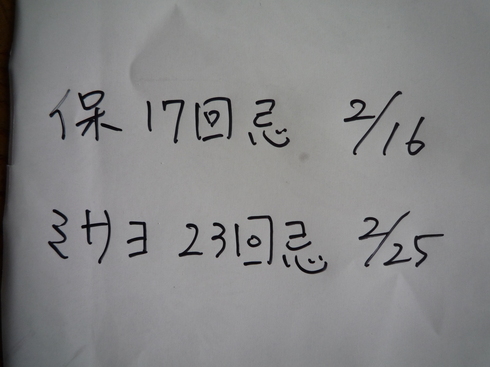 保 17回忌 2/16
ミサヨ 23回忌 2/25